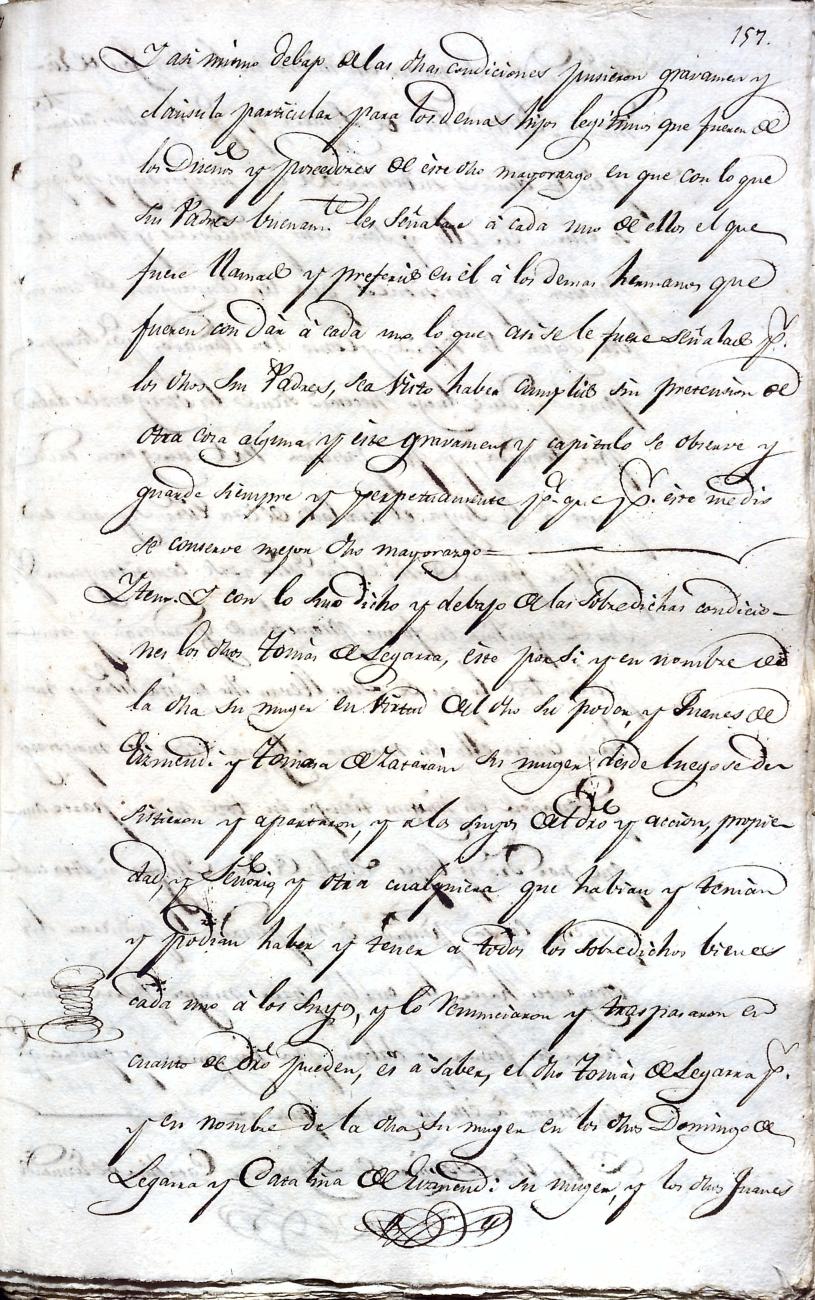 157.
Y asi mismo debajo de las dhas condiciones pusieron gravamen y
clausula particular para los demas hijos legitimos que fueren de
los Dueños y poseedores de este dho mayorazgo en que con lo que
sus Padres buenamte les señalare à cada uno de ellos el que
fuere llamado y preferido en èl à los demas hermanos que
fueren con dàr à cada uno lo que asi se le fuere señalado pr.
los dhos sus Padres, sea visto haber cumplido sin pretension de
otra cosa alguna y este gravamen y capitulo se observe y
guarde siempre y perpetuamente pa. que pr. este medio
se conserve mejor dho mayorazgo=
Ytem. Y con lo suso dicho y debajo de las sobredichas condicio-
nes los dhos Tomàs de Legarra, este por si y en nombre de
la dha su muger en virtud del dho su poder, y Juanes de
Eizmendi y Tomasa de Zatarain su muger desde luego se de
sistieron y apartaron, y a los suyos del dro y accion, propie-
dad, y Señorio y otra cualquiera que habian y tenian
y podian haber y tener a todos los sobredichos bienes
cada uno à los suyos, y lo renunciaron y traspasaron en
cuanto de dro pueden, es à saber, el dho Tomàs de Legarra pr.
y en nombre de la dha su muger en los dhos Domingo de
Legarra y Catalina de Eizmendi su muger, y los dhos Juanes